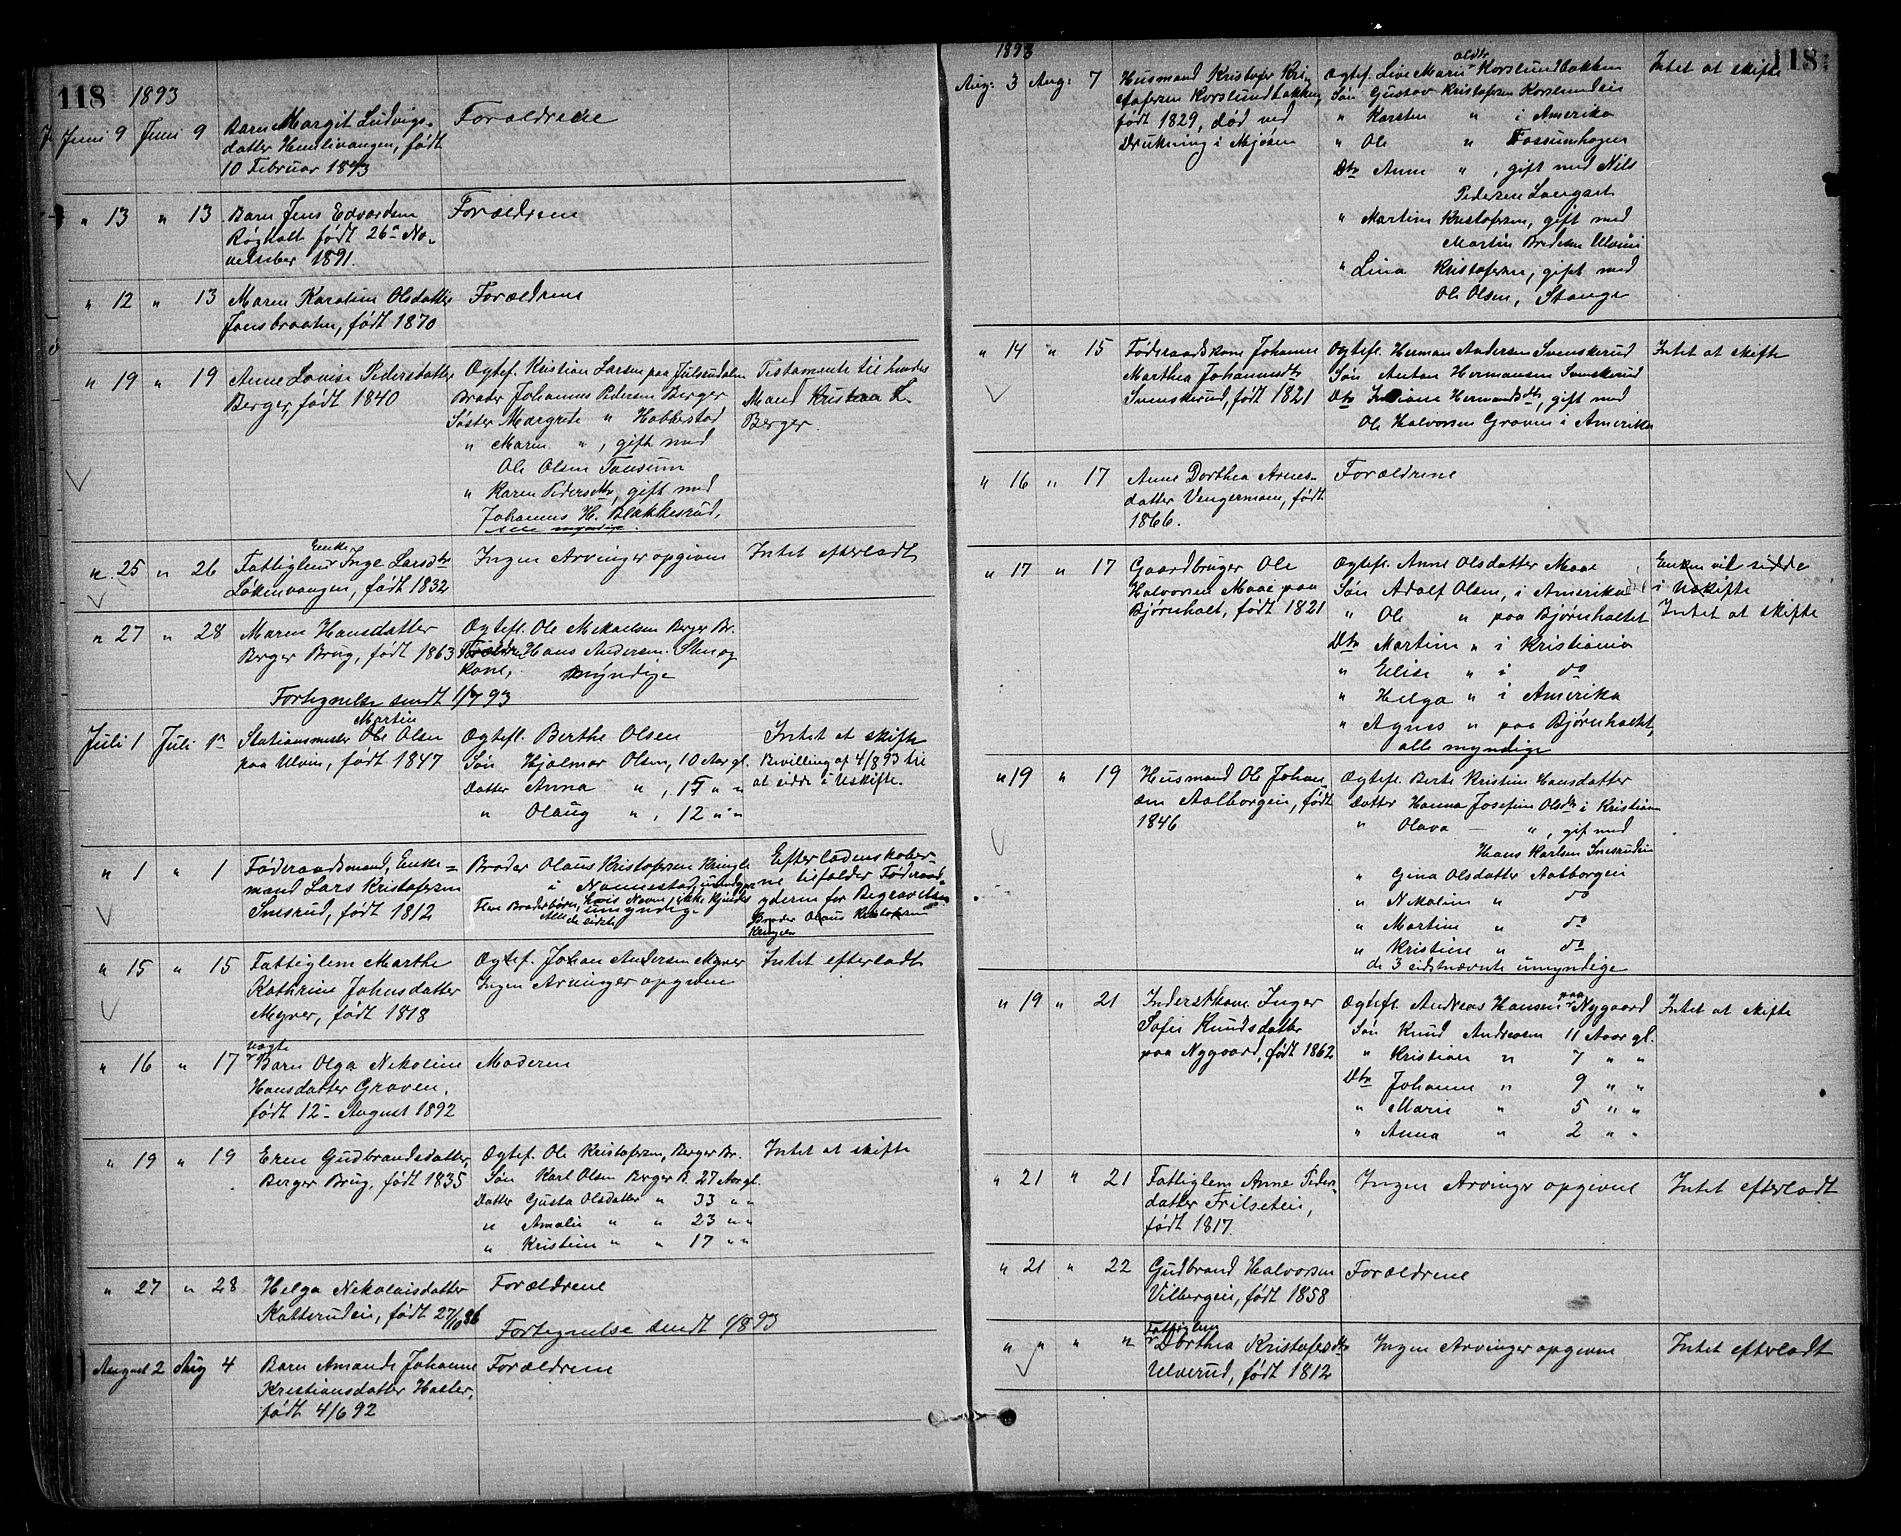 118 1893
Juni 9 Juni 9 Barn Margit Ludvigs- Forældrene
datter Hemlivangen, født
10 Februar 1893
" 13 " 13 Barn Jens Edvardsen Forældrene
Røgholt født 26de No-
vember 1891.
" 12 " 13 Maren Karoline Olsdatter Forældrene
Jonsbraaten, født 1870
" 19 " 19 Anne Lovise Pedersdatter Ægtef. Kristian Larsen paa Julsrudalen Testamente til hendes
Berger, født 1840 Broder Johannes Pedersen Berger Mand Kristian L.
Søster Margrete " Hobbestad Berger.
" Maren " , gift med
Ole Olsen Tansum
" Karen Pedersdtr, gift med
Johannes H. Blakkesrud,
" 25 " 26 Fattiglem Enke Inge Larsdtr Ingen Arvinger opgiven Intet efterladt
Løkenvangen, født 1832
" 27 " 28 Maren Hansdatter Ægtefl. Ole Mikaelsen Berger Br.
Berger Brug, født 1863 Forældre Hans Andersen Sten og
Kone, myndige
Fortegnelse sendt 1/7 93
Juli 1 Juli 1 Stationsmester Ole Martin Olsen Ægtefl. Berthe Olsen Intet at skifte
paa Ulven, født 1847 Søn Hjalmar Olsen, 10 Aar gl. Bevilling af 4/8 93 til
Datter Anna " , 15 " " at sidde i Uskifte.
" Olaug " , 12 " "
" 1 " 1 Føderaadsmand, Enke- Broder Olaus Kristofersen Kringle Efterladenskaber-
mand Lars Kristofersen i Nannestad, ne tilfalder Føderaad-
Smsrud, født 1812 Flere Broderbørn, hvis Navne ikke kjendes yderen for Begravelsen
umyndige Broder Olaus Kristofersen
Kringlen
" 15 " 15 Fattiglem Marthe Ægtef. Johan Andersen Myrer Intet efterladt
Kathrine Johnsdatter Ingen Arvinger opgiven
Myrer, født 1818
" 16 " 17 uægte Barn Olga Nikoline Moderen
Hansdatter Graven,
født 12te August 1892
" 19 " 19 Eren Gudbrandsdatter, Ægtef. Ole Kristofersen, Berger Br. Intet at skifte
Berger Brug, født 1835 Søn Karl Olsen Berger B. 27 Aar gl.
Datter Gusta Olsdatter " 33 " "
" Amalie " " 23 " "
" Kristine " " 17 " "
" 27 " 28 Helga Nikolaisdatter Forældrene
Katterudeie, født 27/10 86
Fortegnelse sendt 1/8 93
August 2 Aug 4 Barn Amanda Johanne Forældrene
Kristiansdatter Hasler,
født 4/6 92
1893 118
Aug: 3 Aug: 7 Husmand Kristofer Kri- Ægtef. Live Marie Korslundbakken Intet at skifte
stofersen Korslundbakken, Søn Gustav Kristofersen Korslundeie
født 1829, død ved " Karsten " i Amerika
Drukning i Mjøsen " Ole " Fossumhagen
Dtr Anne " , gift med Nils
Pedersen
" Martine Kristofersen, gift med
Martin Bredesen Ulvin
" Lina Kristofersen, gift med
Ole Olsen, Stange
" 14 " 15 Føderaadskone Johanne Ægtefl. Herman Andersen Svenskerud Intet at skifte
Marthea Johannesdtr Søn Anton Hermansen Svenskerud
Svenskerud, født 1821 Dtr Hermandsdtr, gift med
Ole Halvorsen Graven i Amerika
" 16 " 17 Anne Dorthea Arnes- Forældrene
datter Vengermoen, født
1866.
" 17 " 17 Gaardbruger Ole Ægtefl. Anne Olsdatter Maae Enken vil sidde
Halvorsen Maae paa Søn Adolf Olsen, i Amerika i Uskifte
Bjørnholt, født 1821 " Ole " paa Bjørnholtet Intet at skifte
Dtr Martine " i Kristiania
" Elise " i do
" Helga " i Amerika
" Agnes " paa Bjørnholtet,
alle myndige
" 19 " 19 Husmand Ole Johan- Ægtefl. Berte Kristine Hansdatter
sen Aalborgeie, født Datter Hanna Josefine Olsdtr i Kristiania
1846 " Olava — " , gift med
Hans Karlsen Smsrudeie
" Gina Olsdatter Aalborgeie
" Nikoline " do
" Martine " do
" Kristine " do
de 3 sidstnævnte umyndige
" 19 " 21 Inderstkone Inger Ægtefl. Andreas Hansen paa Nygaard Intet at skifte
Sofie Knudsdatter Søn Knud Andreasen 11 Aar gl.
paa Nygaard, født 1862 " Kristian " 7 " "
Dtr Johanne " 9 " "
" Marie " 5 " "
" Anna " 2 " "
" 21 " 21 Fattiglem Anne Peders- Ingen Arvinger opgivne Intet efterladt
datter Frilseteie,
født 1817.
" 21 " 22 Gudbrand Halvorsen Forældrene
Vilbergeie, født 1858
" " " " Fattiglem Dorthea Kristofersdtr Ingen Arvinger opgivne Intet efterladt
Ulverud, født 1812